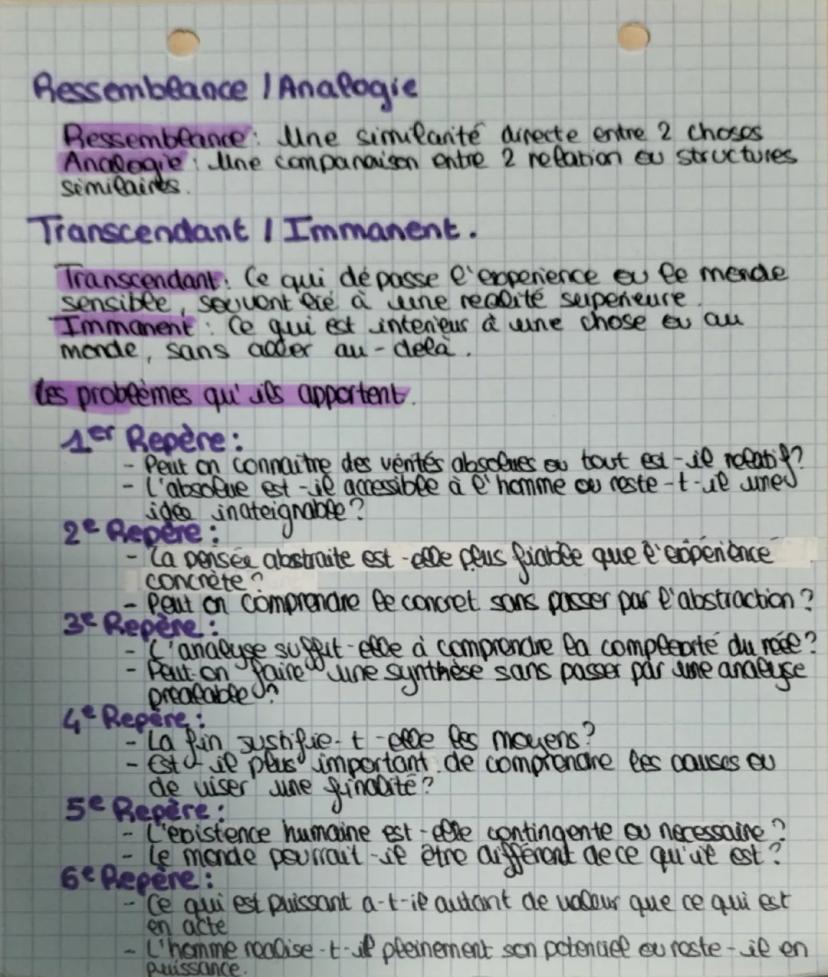 Ressemblance / Analogie
Ressemblance : Une similarité directe entre 2 choses
Analogie : Une comparaison entre 2 relation ou structures
similaires.
Transcendant / Immanent.
Transcendant : Ce qui dépasse l'experience ou le monde
sensible, souvent lié à une realité superieure.
Immanent : Ce qui est interieur à une chose ou au
monde, sans aller au-delà.
Les problèmes qu'ils apportent.
1er Repère :
- Peut on connaitre des vérités absolues ou tout est-il relatif ?
- L'absolue est-il accessible à l'homme ou reste-t-il une
idée inateignable ?
2e Repère :
- La pensée abstraite est-elle plus fiable que l'expérience
concrète ?
- Peut on comprendre le concret sans passer par l'abstraction ?
3e Repère :
- L'analyse suffit-elle à comprendre la complexité du réel ?
- Peut-on faire une synthèse sans passer par une analyse
prealable ?
4e Repère :
- La fin justifie-t-elle les moyens ?
- Est-il plus important de comprendre les causes ou
de viser une finalité ?
5e Repère :
- L'existence humaine est-elle contingente ou necessaire ?
- Le monde pourrait-il être différent de ce qu'il est ?
6e Repère :
- Ce qui est puissant a-t-il autant de valeur que ce qui est
en acte
- L'homme realise-t-il pleinement son potentiel ou reste-il en
puissance.